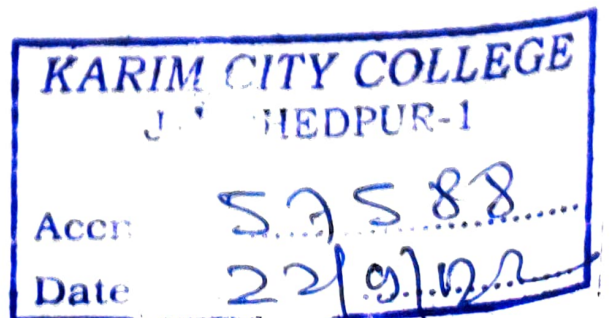 KARIM CITY COLLEGE
HEDPUR-1
Accn 57588
Date 22/9/